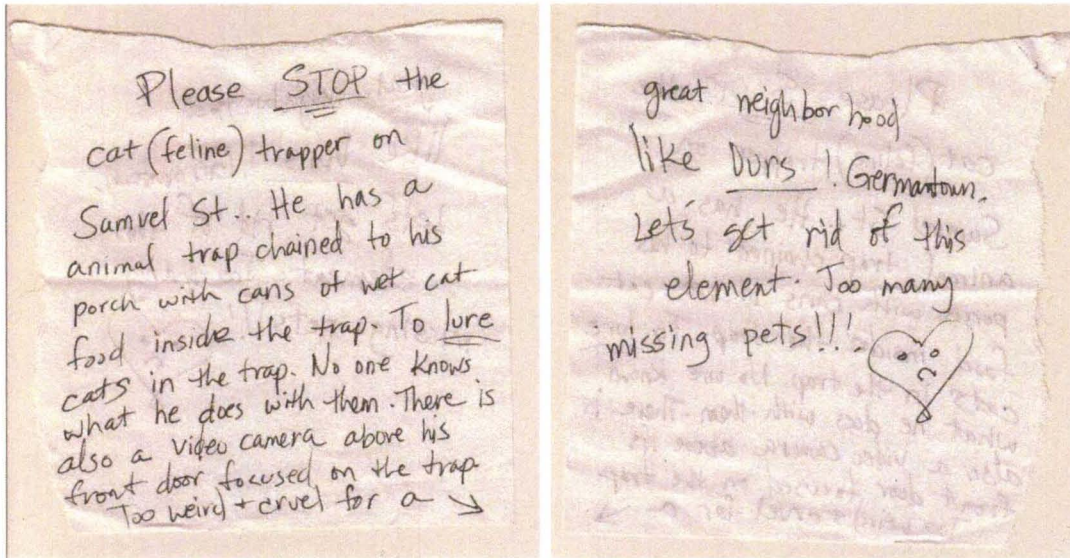 Please STOP the
cat (feline) trapper on
Samuel St.. He has a
animal trap chained to his
porch with cans of wet cat
food inside the trap. To lure
cats in the trap. No one knows
what he does with them. There is
also a video camera above his
front door focused on the trap.
Too weird + cruel for a ↘
great neighborhood
like OURS! Germantown.
Let's get rid of this
element. Too many
missing pets!!!